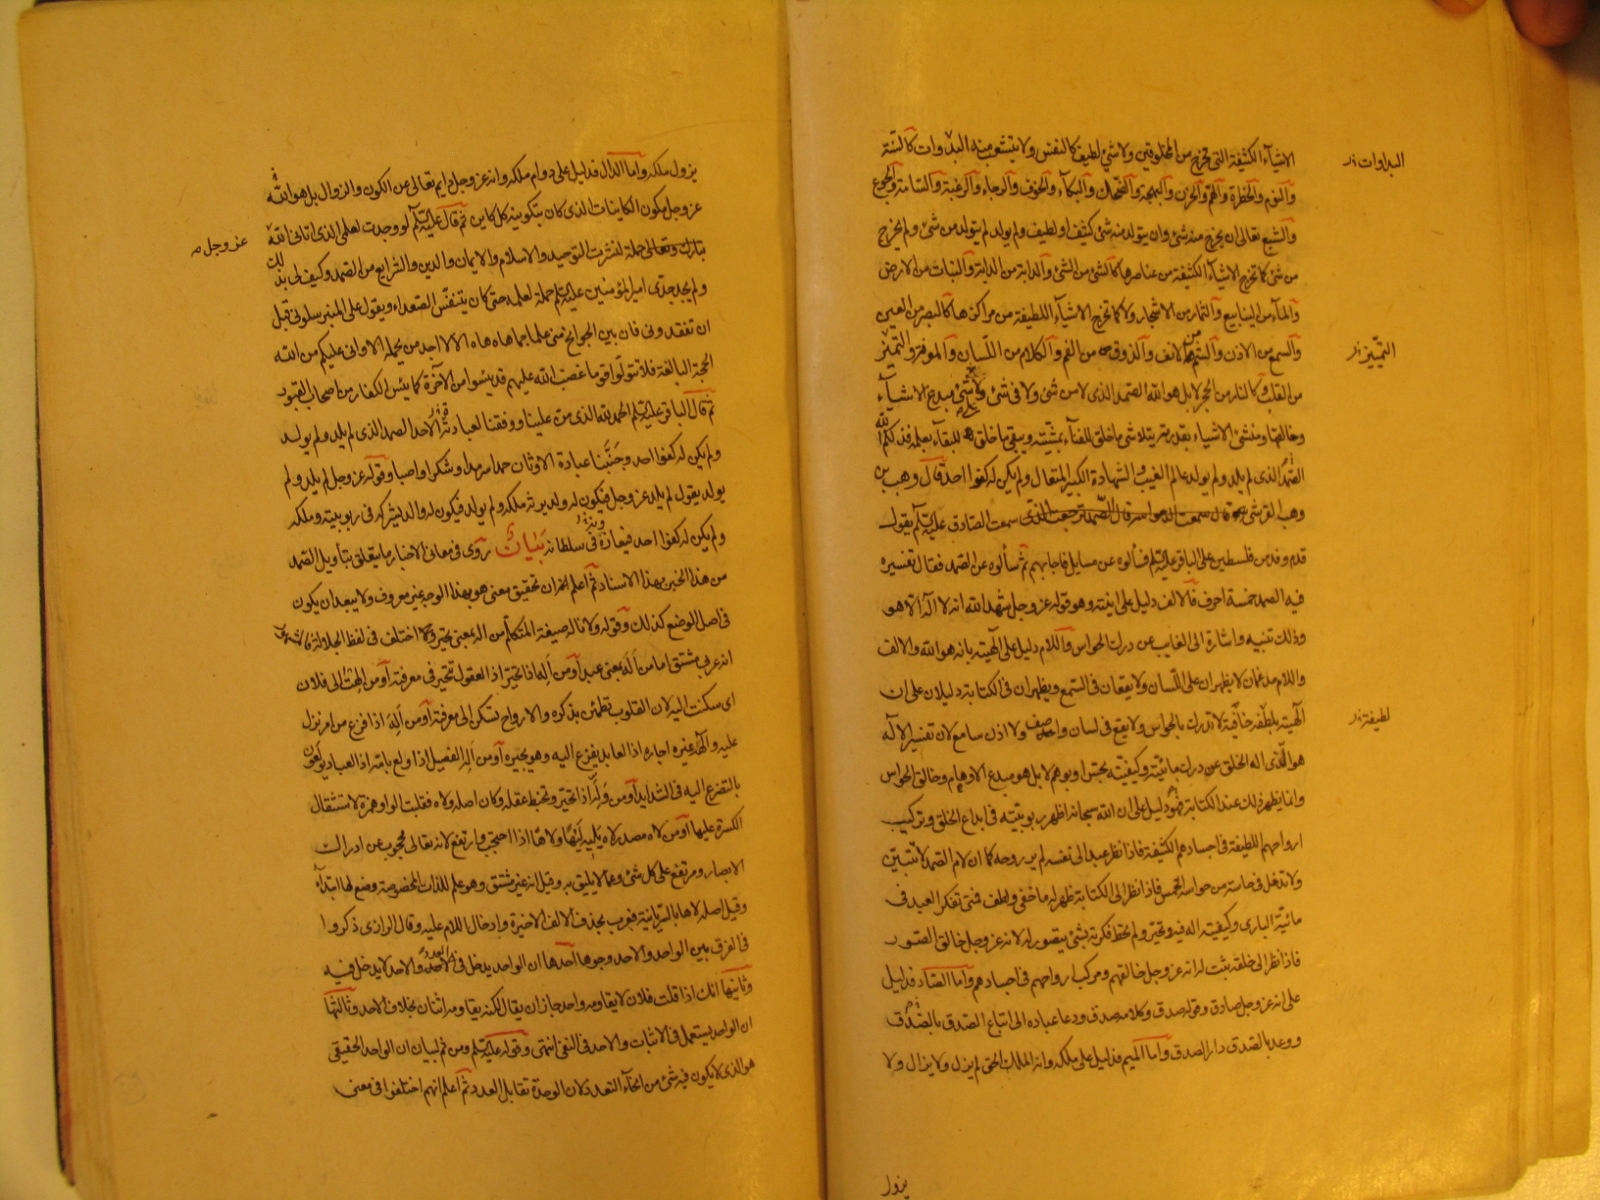 الاشيآء الكثيفة التى تخرج من المخلوقين ولا شئ لطيف كالنفس ولا يتشعب منه البدوات كالسنة
البداوات
والنوم والخطرة والهم والحزن والبهجة والضحك والبكآء والخوف والرجاء والرغبة والسامة والجوع
والشبع تعالى ان يخرج منه شئ وان يتولد منه شئ كثيف او لطيف ولم يولد لم يتولد من شئ ولم يخرج
من شئ كما تخرج الاشيآء الكثيفة من عناصرها كالشئ من الشئ والدابة من الدابة والنبات من الارض
والمآء من الينابيع والثمار من الاشجار ولا كما تخرج الاشيآء اللطيفة من مراكزها كالبصر من العين
والسمع من الاذن والشم من الانف والذوق من الفم والكلام من اللسان والمعرفة والتميز
التميز
من القلب وكالنار من الحجر لا بل هو الله الصمد الذى لا من شئ ولا فى شئ ولا على شئ مبدع الاشيآء
وخالقها ومنشئ الاشياء بقدرته يتلاشى ما خلق للفنآء بمشيته ويبقى ما خلق للبقآء بعلمه فذلكم الله
الصمد الذى لم يلد ولم يولد عالم الغيب والشهادة الكبير المتعال ولم يكن له كفوا احد قال وهب بن
وهب القرشى سمعت الصادق عليه السلم يقول
قدم وفد من فلسطين على الباقر عليه السلم فسألوه عن مسايل فاجابهم ثم سألوه عن الصمد فقال تفسيره
فيه الصمد خمسة احرف فالالف دليل على انيته وهو قوله عز وجل شهد الله انه لا اله الا هو
وذلك تنبيه واشارة الى الغايب عن درك الحواس واللام دليل على الهيته بانه هو الله والالف
واللام مدغمان لا يظهران على اللسان ولا يقعان فى السمع ويظهران فى الكتابة دليلان على ان
الهيته بلطفه خافية لا تدرك بالحواس ولا يقع فى لسان واصف ولا اذن سامع لان تفسير الاله
لطيفة
هو الذى اله الخلق عن درك مائيته وكيفيته بحس او بوهم لا بل هو مبدع الاوهام وخالق الحواس
وانما يظهر ذلك عند الكتابة فهو دليل على ان الله سبحانه اظهر ربوبيته فى ابداع الخلق وتركيب
ارواحهم اللطيفة فى اجسادهم الكثيفة فاذا نظر عبد الى نفسه لم ير روحه كما ان لام الصمد لا تتبين
ولا تدخل فى حاسة من حواسه الخمس فاذا نظر الى الكتابة ظهر له ما خفى ولطف فمتى تفكر العبد فى
مائية البارى وكيفيته اله فيه وتحير ولم تحط فكرته بشئ يتصور له لانه عز وجل خالق الصور
فاذا نظر الى خلقه ثبت له انه عز وجل خالقهم ومركب ارواحهم فى اجسادهم واما الصاد فدليل
على انه عز وجل صادق وقوله صدق وكلامه صدق ودعا عباده الى اتباع الصدق بالصدق
ووعد بالصدق دار الصدق واما الميم فدليل على ملكه وانه الملك الحق لم يزل ولا يزال ولا
يزول
يزول ملكه واما الدال فدليل على دوام ملكه وانه عز وجل دايم تعالى عن الكون والزوال بل هو الله
عز وجل مكون الكاينات الذى كان بتكوينه كل كاين ثم قال عليه السلم لو وجدت لعلمى الذى اتانى الله
عز وجل
تبارك وتعالى حملة لنشرت التوحيد والاسلام والايمان والدين والشرايع من الصمد وكيف لى بذلك
ولم يجد جدى امير المؤمنين عليه السلم حملة لعلمه حتى كان يتنفس الصعداء ويقول على المنبر سلونى قبل
ان تفقدونى فان بين الجوانح منى علما جما هاه هاه الا لا اجد من يحمله الا وانى عليكم من الله
الحجة البالغة فلا تتولوا قوما غضب الله عليهم قد يئسوا من الآخرة كما يئس الكفار من اصحاب القبور
ثم قال الباقر عليه السلم الحمد لله الذى من علينا ووفقنا لعبادته الاحد الصمد الذى لم يلد ولم يولد
ولم يكن له كفوا احد وجنبنا عبادة الاوثان حمدا سرمدا وشكرا واصبا وقوله عز وجل لم يلد ولم
يولد يقول لم يلد عز وجل فيكون له ولد يرثه ملكه ولم يولد فيكون له والد يشركه فى ربوبيته وملكه
ولم يكن له كفوا احد فيعازه فى سلطانه بيان روى فى معانى الاخبار ما يتعلق بتاويل الصمد
من هذا الخبر بهذا الاسناد ثم اعلم ان تحقيق معنى هو بهذا الوجه غير معروف ولا يبعد ان يكون
فى اصل الوضع كذلك وقوله ولا ناله صيغة المتكلم من اله بمعنى تحير وقد اختلف فى لفظ الجلالة فالمشهور
انه عربى مشتق اما من اله بمعنى عبد او من اله اذا تحير اذ العقول تتحير فى معرفته او من الهت الى فلان
اى سكنت اليه لان القلوب تطمئن بذكره والارواح تسكن الى معرفته او من اله اذا فزع من امر نزل
عليه وآلهه غيره اجاره اذ العابد يفزع اليه وهو يجيره او من اله الفصيل اذا ولع بامه اذ العباد يولعون
بالتضرع اليه فى الشدايد او من وله اذا تحير وتخبط عقله وكان اصله ولاه فقلبت الواو همزة لاستثقال
الكسرة عليها او من لاه مصدر لاه يليه ليها ولاها اذا احتجب وارتفع لانه تعالى محجوب عن ادراك
الابصار ومرتفع على كل شئ وعما لا يليق به وقيل انه غير مشتق وهو علم للذات المخصوصة وضع لها ابتدآء
وقيل اصله لاها بالسريانية فعرب بحذف الالف الاخيرة وادخال اللام عليه وقال الرازى ذكروا
فى الفرق بين الواحد والاحد وجوها احدها ان الواحد يدخل فى العدد والاحد لا يدخل فيه
وثانيها انك اذا قلت فلان لا يقاومه واحد جاز ان يقال لكنه يقاومه اثنان بخلاف الاحد وثالثها
ان الواحد يستعمل فى الاثبات والاحد فى النفى انتهى وقوله عليه السلم ومن ثم لبيان ان الواحد الحقيقى
هو الذى لا يكون فيه شئ من انحآء التعدد لان الوحدة تقابل العدد ثم اعلم انهم اختلفوا فى معنى